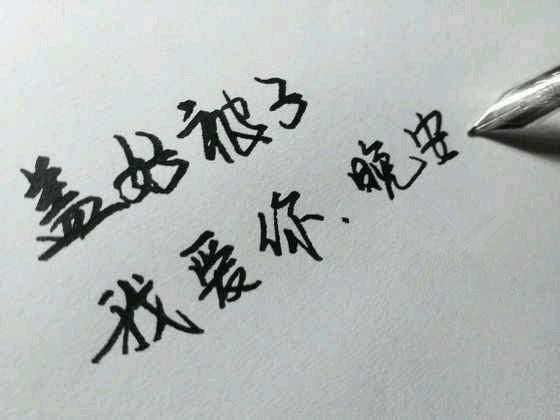 盖好被子
我爱你.晚安